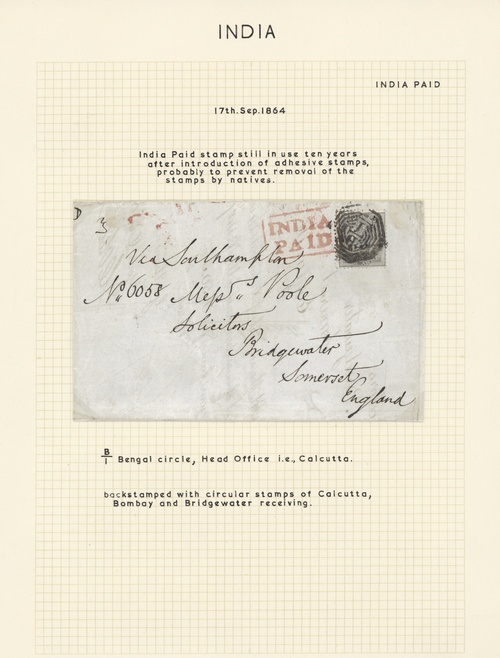 INDIA
INDIA PAID
17th.Sep.1864
India Paid stamp still in use ten years
after introduction of adhesive stamps,
probably to prevent removal of the
stamps by natives.
INDIA
PAID
Via Southampton
No. 6058 Messrs Poole
Solicitors
Bridgewater
Somerset
England
B/1 Bengal circle, Head Office i.e., Calcutta.
backstamped with circular stamps of Calcutta,
Bombay and Bridgewater receiving.